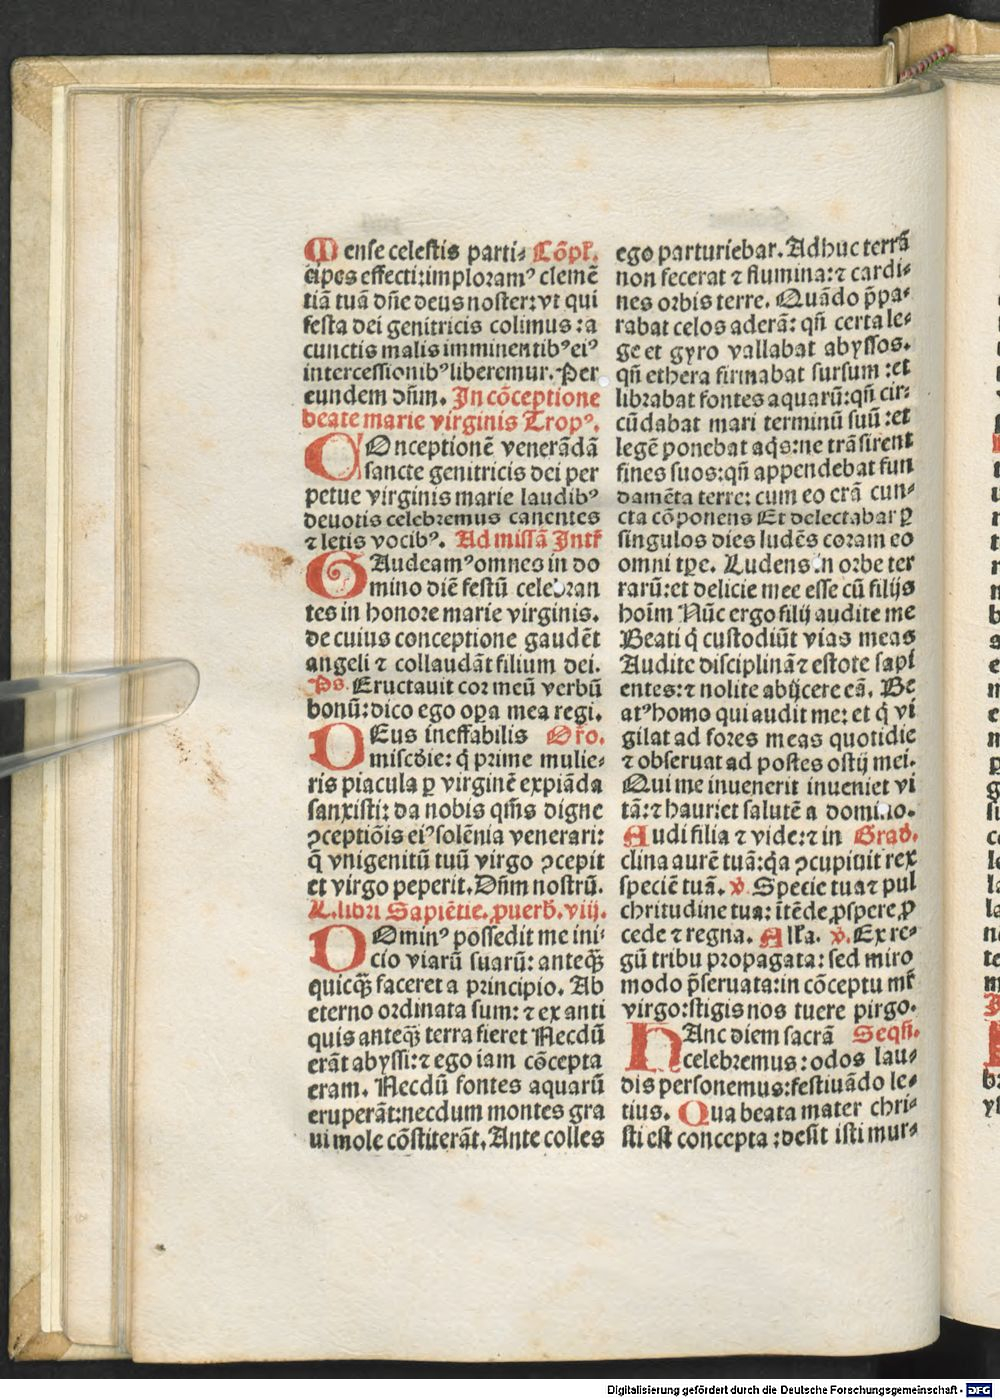 Mense celestis parti⸗ Cōpl̄.
cipes effecti:imploramꝰ clemē
tiā tuā dn̄e deus noster:vt qui
festa dei genitricis colimus:a
cunctis malis imminentibꝰ eiꝰ
intercessionibꝰ liberemur. Per
eundem dn̄m. In cōceptione
beate marie virginis Tropꝰ.
COnceptionē venerādā
sancte genitricis dei per
petue virginis marie laudibꝰ
deuotis celebremus canentes
⁊ letis vocibꝰ. Ad missā Intr̄
GAudeamꝰ omnes in do
mino diē festū celebran
tes in honore marie virginis.
de cuius conceptione gaudēt
angeli ⁊ collaudāt filium dei.
Ps. Eructauit cor meū verbū
bonū:dico ego oꝑa mea regi.
DEus ineffabilis Or̄o.
miscd̄ie: q̄ prime mulie⸗
ris piacula ꝑ virginē expiāda
sanxisti: da nobis qm̄s digne
ꝯceptiōis eiꝰ solēnia venerari:
q̄ vnigenitū tuū virgo ꝯcepit
et virgo peperit. Dn̄m nostrū.
L. libri Sapiētie. ꝓuerb̄. viij.
DOminꝰ possedit me ini⸗
cio viarū suarū: anteqꝫ
quicqꝫ faceret a principio. Ab
eterno ordinata sum: ⁊ ex anti
quis anteqꝫ terra fieret Necdū
erāt abyssi:⁊ ego iam cōcepta
eram. Necdū fontes aquarū
eruperāt:necdum montes gra
ui mole cōstiterāt. Ante colles
ego parturiebar. Adhuc terrā
non fecerat ⁊ flumina:⁊ cardi⸗
nes orbis terre. Quādo p̄pa⸗
rabat celos aderā: qn̄ certa le⸗
ge et gyro vallabat abyssos.
qn̄ ethera firmabat sursum :et
librabat fontes aquarū:qn̄ cir⸗
cūdabat mari terminū suū :et
legē ponebat aq̄s:ne trāsirent
fines suos:qn̄ appendebat fun
damēta terre: cum eo erā cun⸗
cta cōponens Et delectabar ꝑ
singulos dies ludēs coram eo
omni tꝑe. Ludens in orbe ter
rarū:et delicie mee esse cū filijs
hoīm Nūc ergo filij audite me
Beati q̄ custodiūt vias meas
Audite disciplinā ⁊ estote sapī
entes:⁊ nolite abijcere eā. Be
atꝰ homo qui audit me: et q̄ vi
gilat ad fores meas quotidie
⁊ obseruat ad postes ostij mei.
Qui me inuenerit inueniet vi
tā:⁊ hauriet salutē a domino.
Audi filia ⁊ vide:⁊ in Grad̄.
clina aurē tuā:q̄a ꝯcupiuit rex
speciē tuā. v̄. Specie tua ⁊ pul
chritudine tua: ītēde ꝓspere ꝓ
cede ⁊ regna. Allā. v̄. Ex re⸗
gū tribu propagata: sed miro
modo p̄seruata:in cōceptu mr̄
virgo:stigis nos tuere pirgo.
HAnc diem sacrā Seqn̄.
celebremus: odos lau⸗
dis personemus:festiuādo le⸗
tius. Qua beata mater chri⸗
sti est concepta :desit isti mur⸗
Digitalisierung gefördert durch die Deutsche Forschungsgemeinschaft - DFG